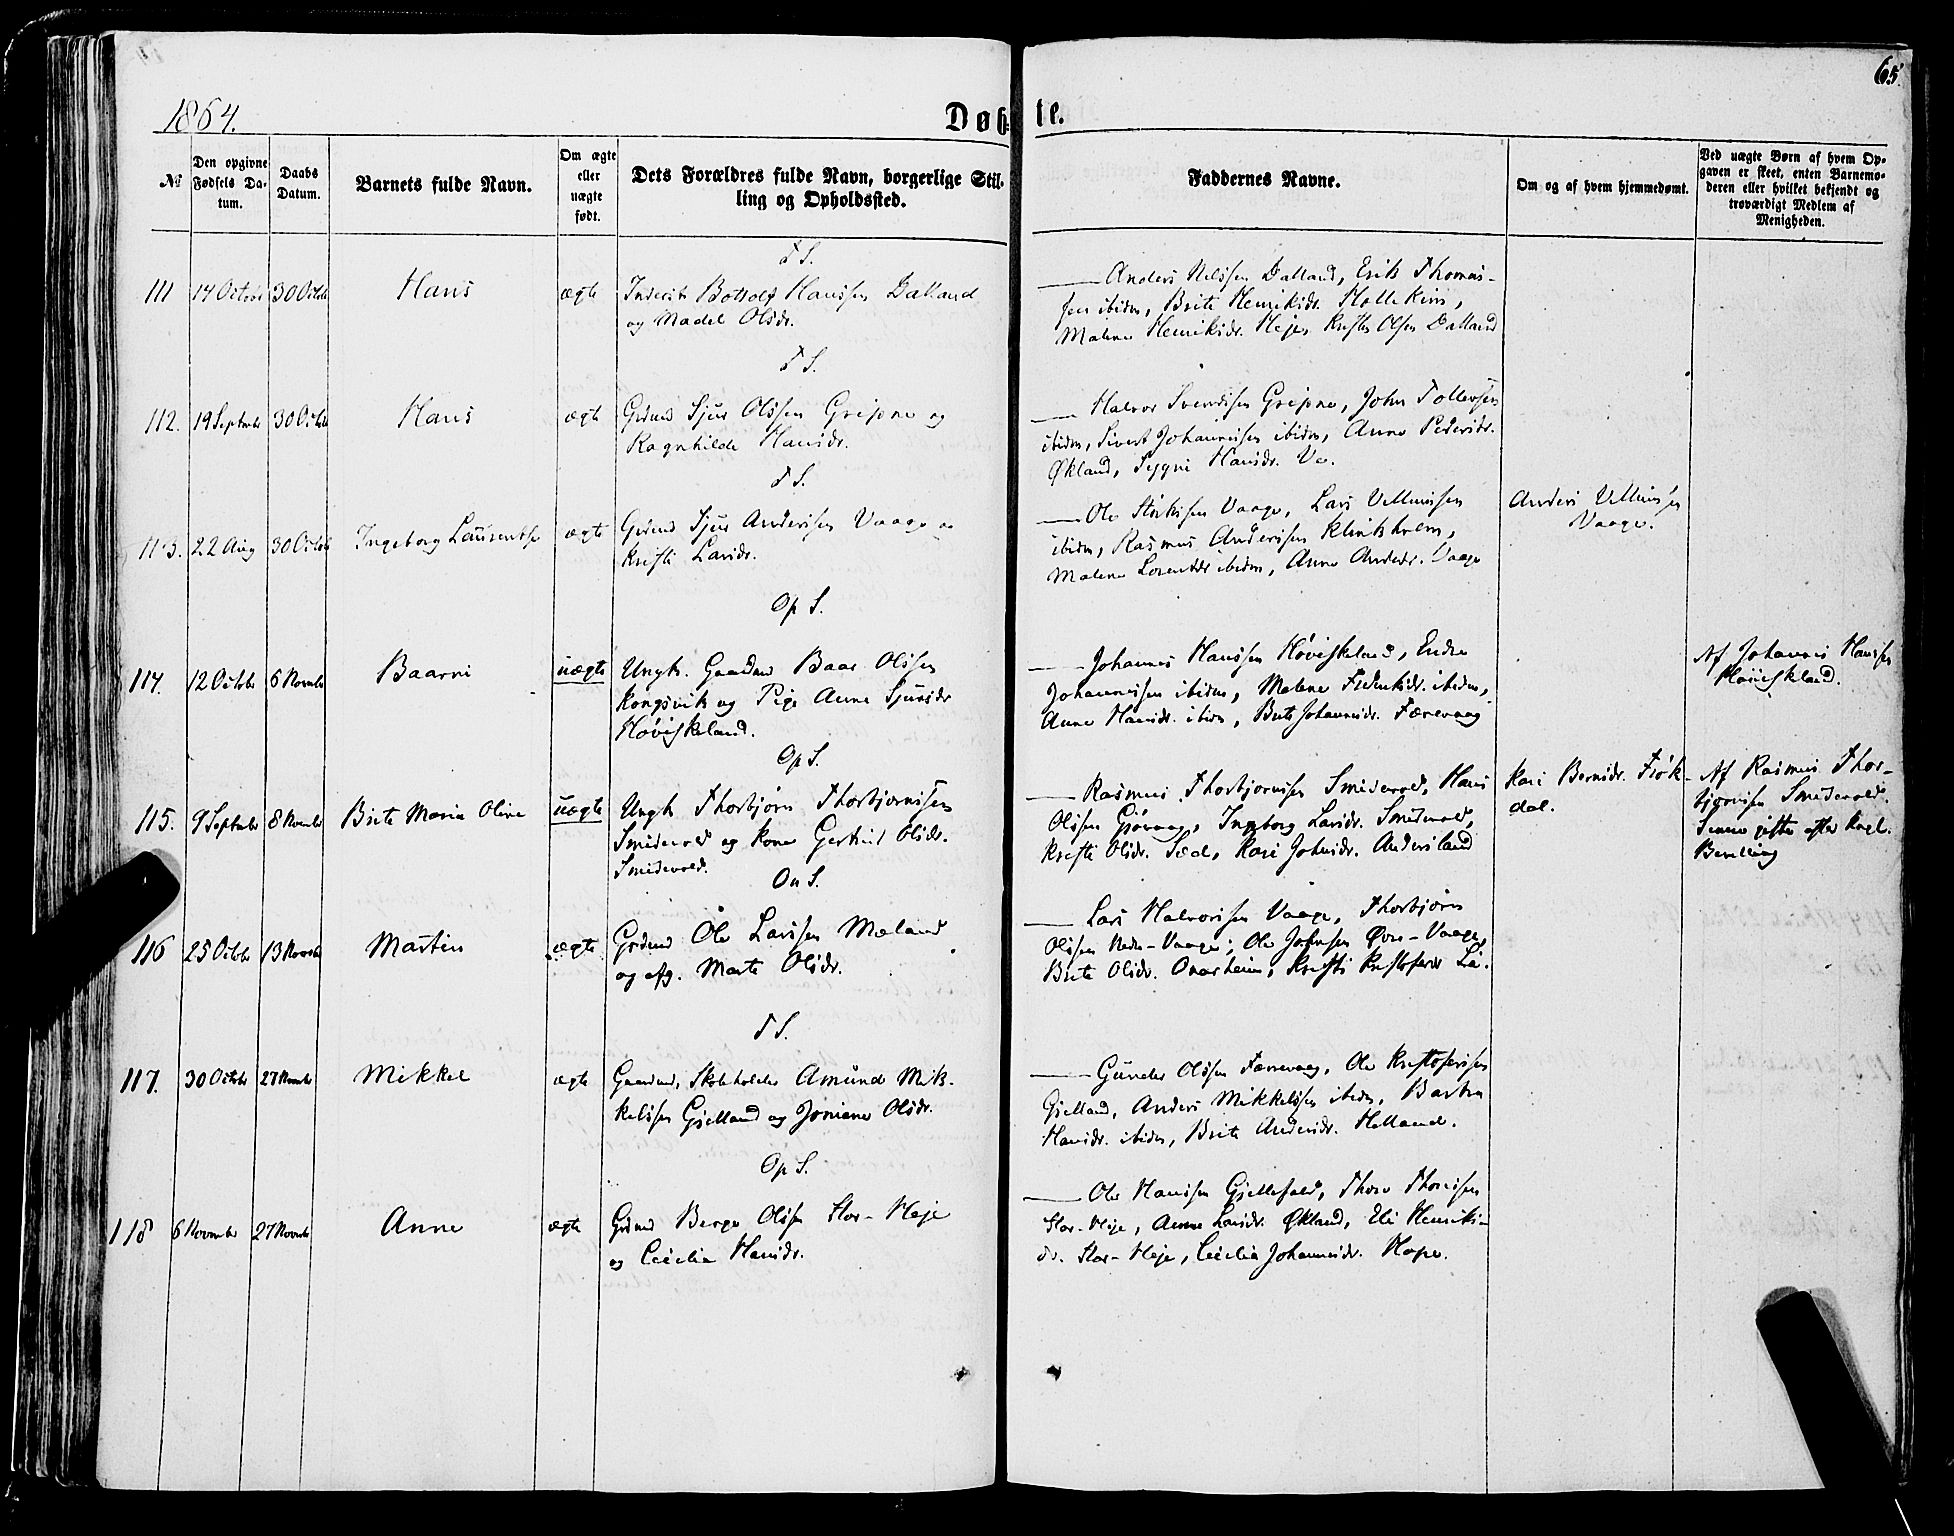 65.
1864.
Døbte.
№
Den opgivne Fødsels Datum.
Daabs Datum.
Barnets fulde Navn.
Om ægte eller uægte født.
Dets Forældres fulde Navn, borgerlige Stilling og Opholdssted.
Faddernes Navne.
Om og af hvem hjemmedømt.
Ved uægte Børn af hvem Opgaven er skeet, enten Barnemoderen eller hvilket bekjendt og troværdigt Medlem af Menigheden.
T S.
111 14 Octobr 30 Octob Hans ægte
Botholf Hanssen Dalland
og Madel Olsdr.
Anders Nilssen Dalland, Erik Thomas-
sen ibidm, Brite Henriksdr.
Malene Henriksdr. Heje, Krists Olsen Dalland
T S.
112. 19 Septmbr 30 Octob Hans ægte
Grdmd Sjur Olssen Gripne og
Ragnhilde Hansdr.
Halvor Svendsen Gripne, John Tollefsen
ibidm, Sivert Johannessen ibidm, Anne Pedersdr.
Økland, Hansdr.
T S.
113. 22 Aug 30 Octob Ingeborg Laurentse ægte
Grdmd Sjur Andersen Vaage og
Kristi Larsdr.
Ole Vaage, Lars Vellumsen
ibidm, Rasmus Andersen
Malene ibidm, Anne Andsdr. Vaage
Anders Vellumsen
Vaage.
Op S.
114. 12 Octobr 6 Novmbr Baarni uægte
Ungk. Gaardmd Baar Olssen
Kongsvik og Pige Anne Sjursdr
Høviskeland.
Johannes Hanssen Høviskeland, Endre
Johannessen ibidm, Malene ibidm,
Anne Hansdr. ibidm, Brite Johannesdr. Færevaag
Af Johannes Hanssen
Høviskeland.
Op S.
115. 9 Septmbr 8 Novmbr Brite Marie Oline uægte
Ungk Thorbjørn Thorbjørnssen
Smidevold og Kone Gertrud Olsdr.
Smidevold.
Rasmus Thorbjørnsen Smidevold, Hans
Olssen Ingeborg Larsdr. Smidevold,
Kristi Olsdr. Kari Johnsdr. Andersland
Kari Berntsdr. Frøk-
dal.
Af Rasmus Thor-
bjørnsen Smidevold.
Senere gifte efter Kngl.
Bevilling
On S.
116 25 Octobr 13 Novmbr Martin ægte
Grdmd Ole Larssen Mæland
og afg. Marte Olsdr.
Lars Halvorssen Vaage, Thorbjørn
Olssen Nedre-Vaage, Ole Johnsen Øvre-Vaage,
Brite Olsdr. Onarheim, Kristi
T S.
117. 30 Octobr 27 Novmbr Mikkel ægte
Gaardmd, Skoleholder Amund Mik-
kelsen Gjelland og Joniane Olsdr.
Gunder Olssen Færevaag, Ole Kristofersen
Gjelland, Anders Mikkelsen ibidm, Barbra
Hansdr. ibidm, Brite Andersdr. Helland.
Op S.
118 6 Novembr 27 Novmbr Anne ægte
Grdmd Berge Olssen Stor-Heje
og Cecilia Hansdr.
Ole Hanssen Thore Thoressen
Stor-Heje, Anne Larsdr. Økland, Eli Henriks-
dr. Stor-Heje, Cecilia Johannesdr. Hope.